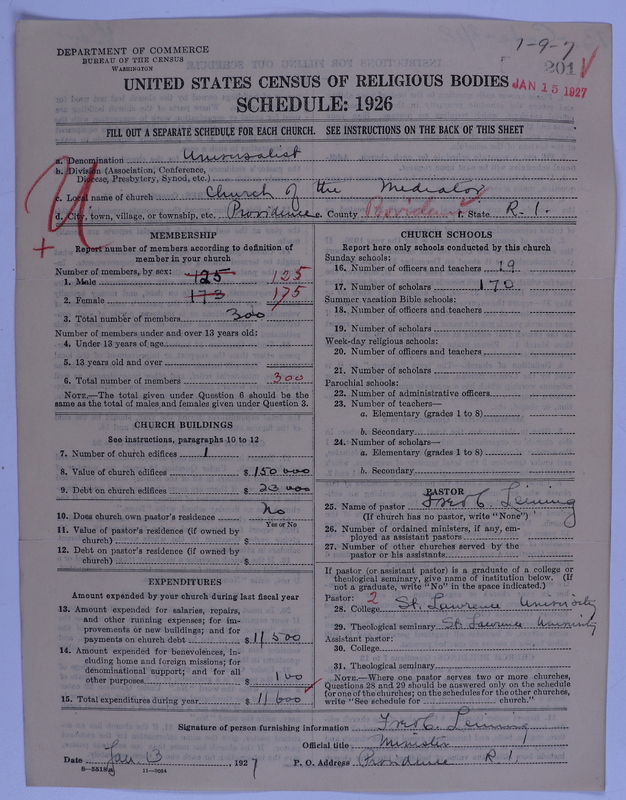 1-9-7
DEPARTMENT OF COMMERCE
BUREAU OF THE CENSUS
WASHINGTON
201
UNITED STATES CENSUS OF RELIGIOUS BODIES
JAN 15 1927
SCHEDULE: 1926
FILL OUT A SEPARATE SCHEDULE FOR EACH CHURCH. SEE INSTRUCTIONS ON THE BACK OF THIS SHEET
a. Denomination Universalist
b. Division (Association, Conference,
Diocese, Presbytery, Synod, etc.)
c. Local name of church Church of the Mediator
d. City, town, village, or township, etc. Providence e. County Providence f. State R. I.
U
+
MEMBERSHIP
Report number of members according to definition of
member in your church
Number of members, by sex:
1. Male 125 125
2. Female 173 175
3. Total number of members 300
Number of members under and over 13 years old:
4. Under 13 years of age
5. 13 years old and over
6. Total number of members 300
NOTE.—The total given under Question 6 should be the
same as the total of males and females given under Question 3.
CHURCH BUILDINGS
See instructions, paragraphs 10 to 12
7. Number of church edifices 1
8. Value of church edifices $ 150 000
9. Debt on church edifices $ 23 000
10. Does church own pastor's residence No
Yes or No
11. Value of pastor's residence (if owned by
church) $
12. Debt on pastor's residence (if owned by
church) $
EXPENDITURES
Amount expended by your church during last fiscal year
13. Amount expended for salaries, repairs,
and other running expenses; for im-
provements or new buildings; and for
payments on church debt $ 11 500
14. Amount expended for benevolences, in-
cluding home and foreign missions; for
denominational support; and for all
other purposes $ 100
15. Total expenditures during year $ 11 600
CHURCH SCHOOLS
Report here only schools conducted by this church
Sunday schools:
16. Number of officers and teachers 19
17. Number of scholars 170
Summer vacation Bible schools:
18. Number of officers and teachers
19. Number of scholars
Week-day religious schools:
20. Number of officers and teachers
21. Number of scholars
Parochial schools:
22. Number of administrative officers
23. Number of teachers—
a. Elementary (grades 1 to 8)
b. Secondary
24. Number of scholars—
a. Elementary (grades 1 to 8)
b. Secondary
PASTOR
25. Name of pastor Fred C. Leining
(If church has no pastor, write "None")
26. Number of ordained ministers, if any, em-
ployed as assistant pastors
27. Number of other churches served by the
pastor or his assistants
If pastor (or assistant pastor) is a graduate of a college or
theological seminary, give name of institution below. (If
not a graduate, write "No" in the space indicated.)
Pastor: 2
28. College St. Lawrence University
29. Theological seminary St Lawrence University
Assistant pastor:
30. College
31. Theological seminary
NOTE.—Where one pastor serves two or more churches,
Questions 28 and 29 should be answered only on the schedule
for one of the churches; on the schedules for the other churches,
write "See schedule for church."
Signature of person furnishing information Fred C. Leining
Official title Minister
Date Jan 13, 1927 P. O. Address Providence R I.
8-5518a 11-9034